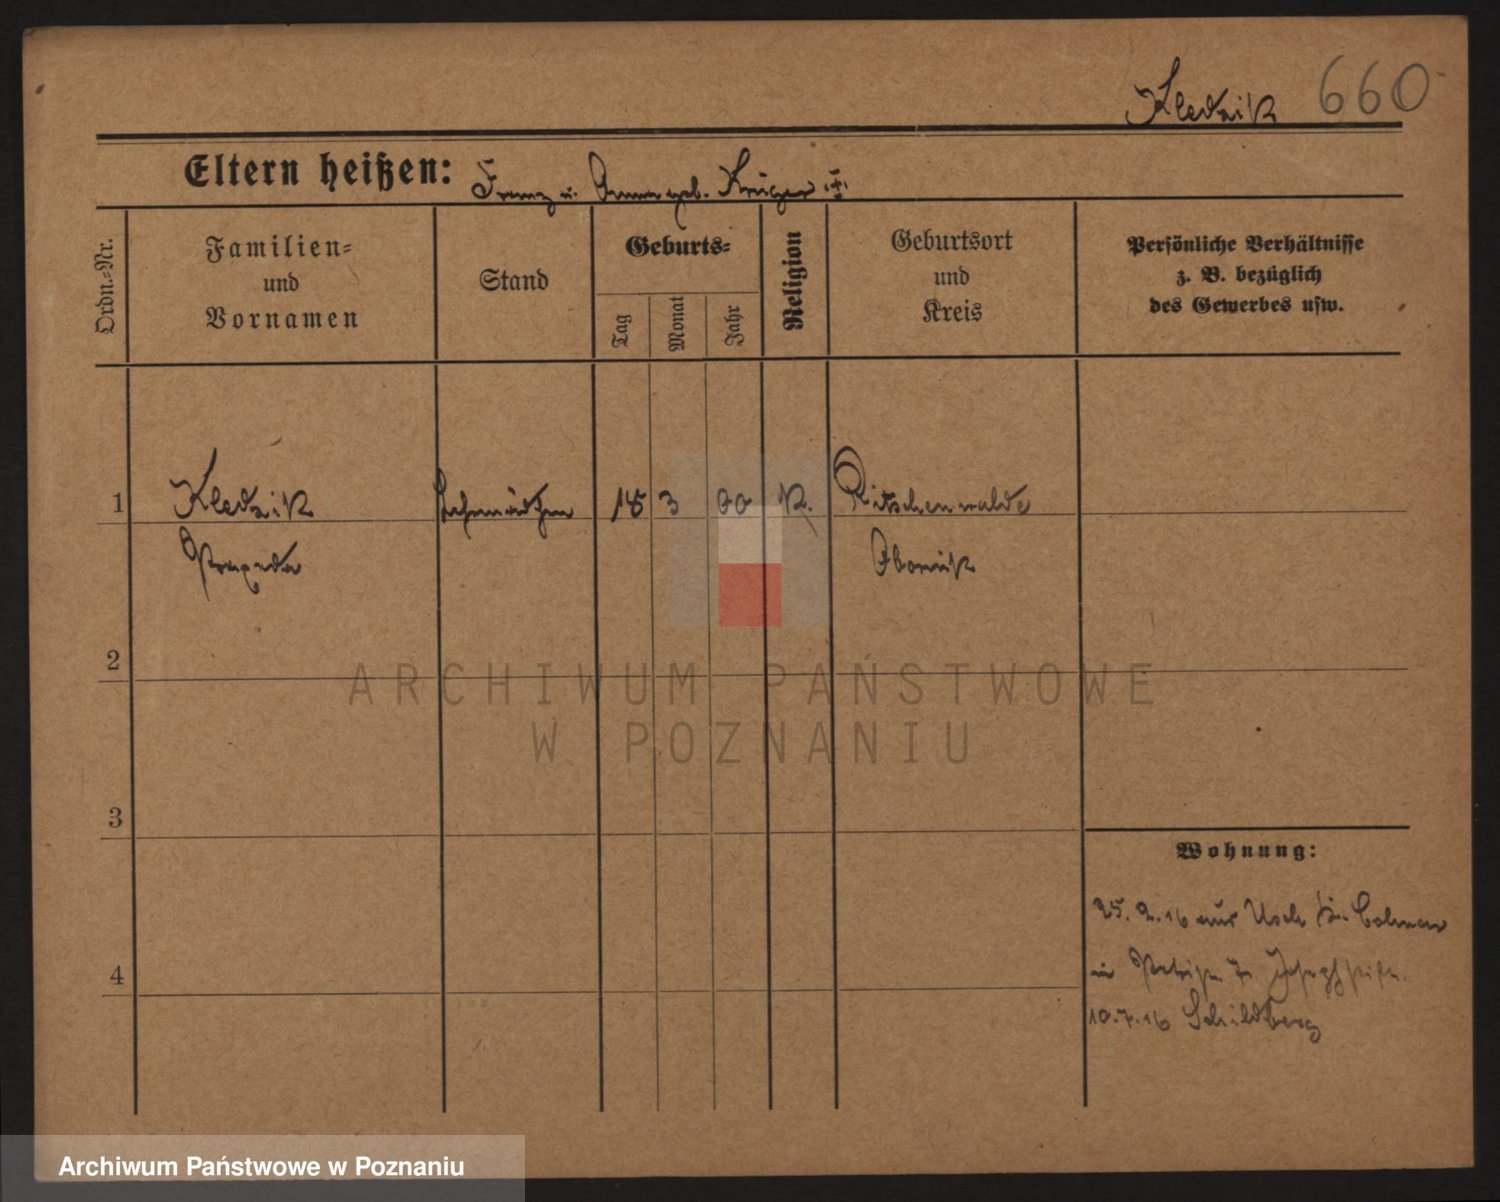 Kledzik 660
Eltern heißen: Franz u. Anna geb. Krüger
Ordn.-Nr.
Familien-
und
Vornamen
Stand
Geburts-
Tag
Monat
Jahr
Religion
Geburtsort
und
Kreis
Persönliche Verhältnisse
z. B. bezüglich
des Gewerbes usw.
1 Kledzik 18 3 00 K. Ritschenwalde
Praxeda Obornik
2
ARCHIWUM PAŃSTWOWE
W POZNANIU
3
Wohnung:
25. 2. 16 aus Usch Kr. Colmar
4 in
10. 7. 16 Schildberg
Archiwum Państwowe w Poznaniu